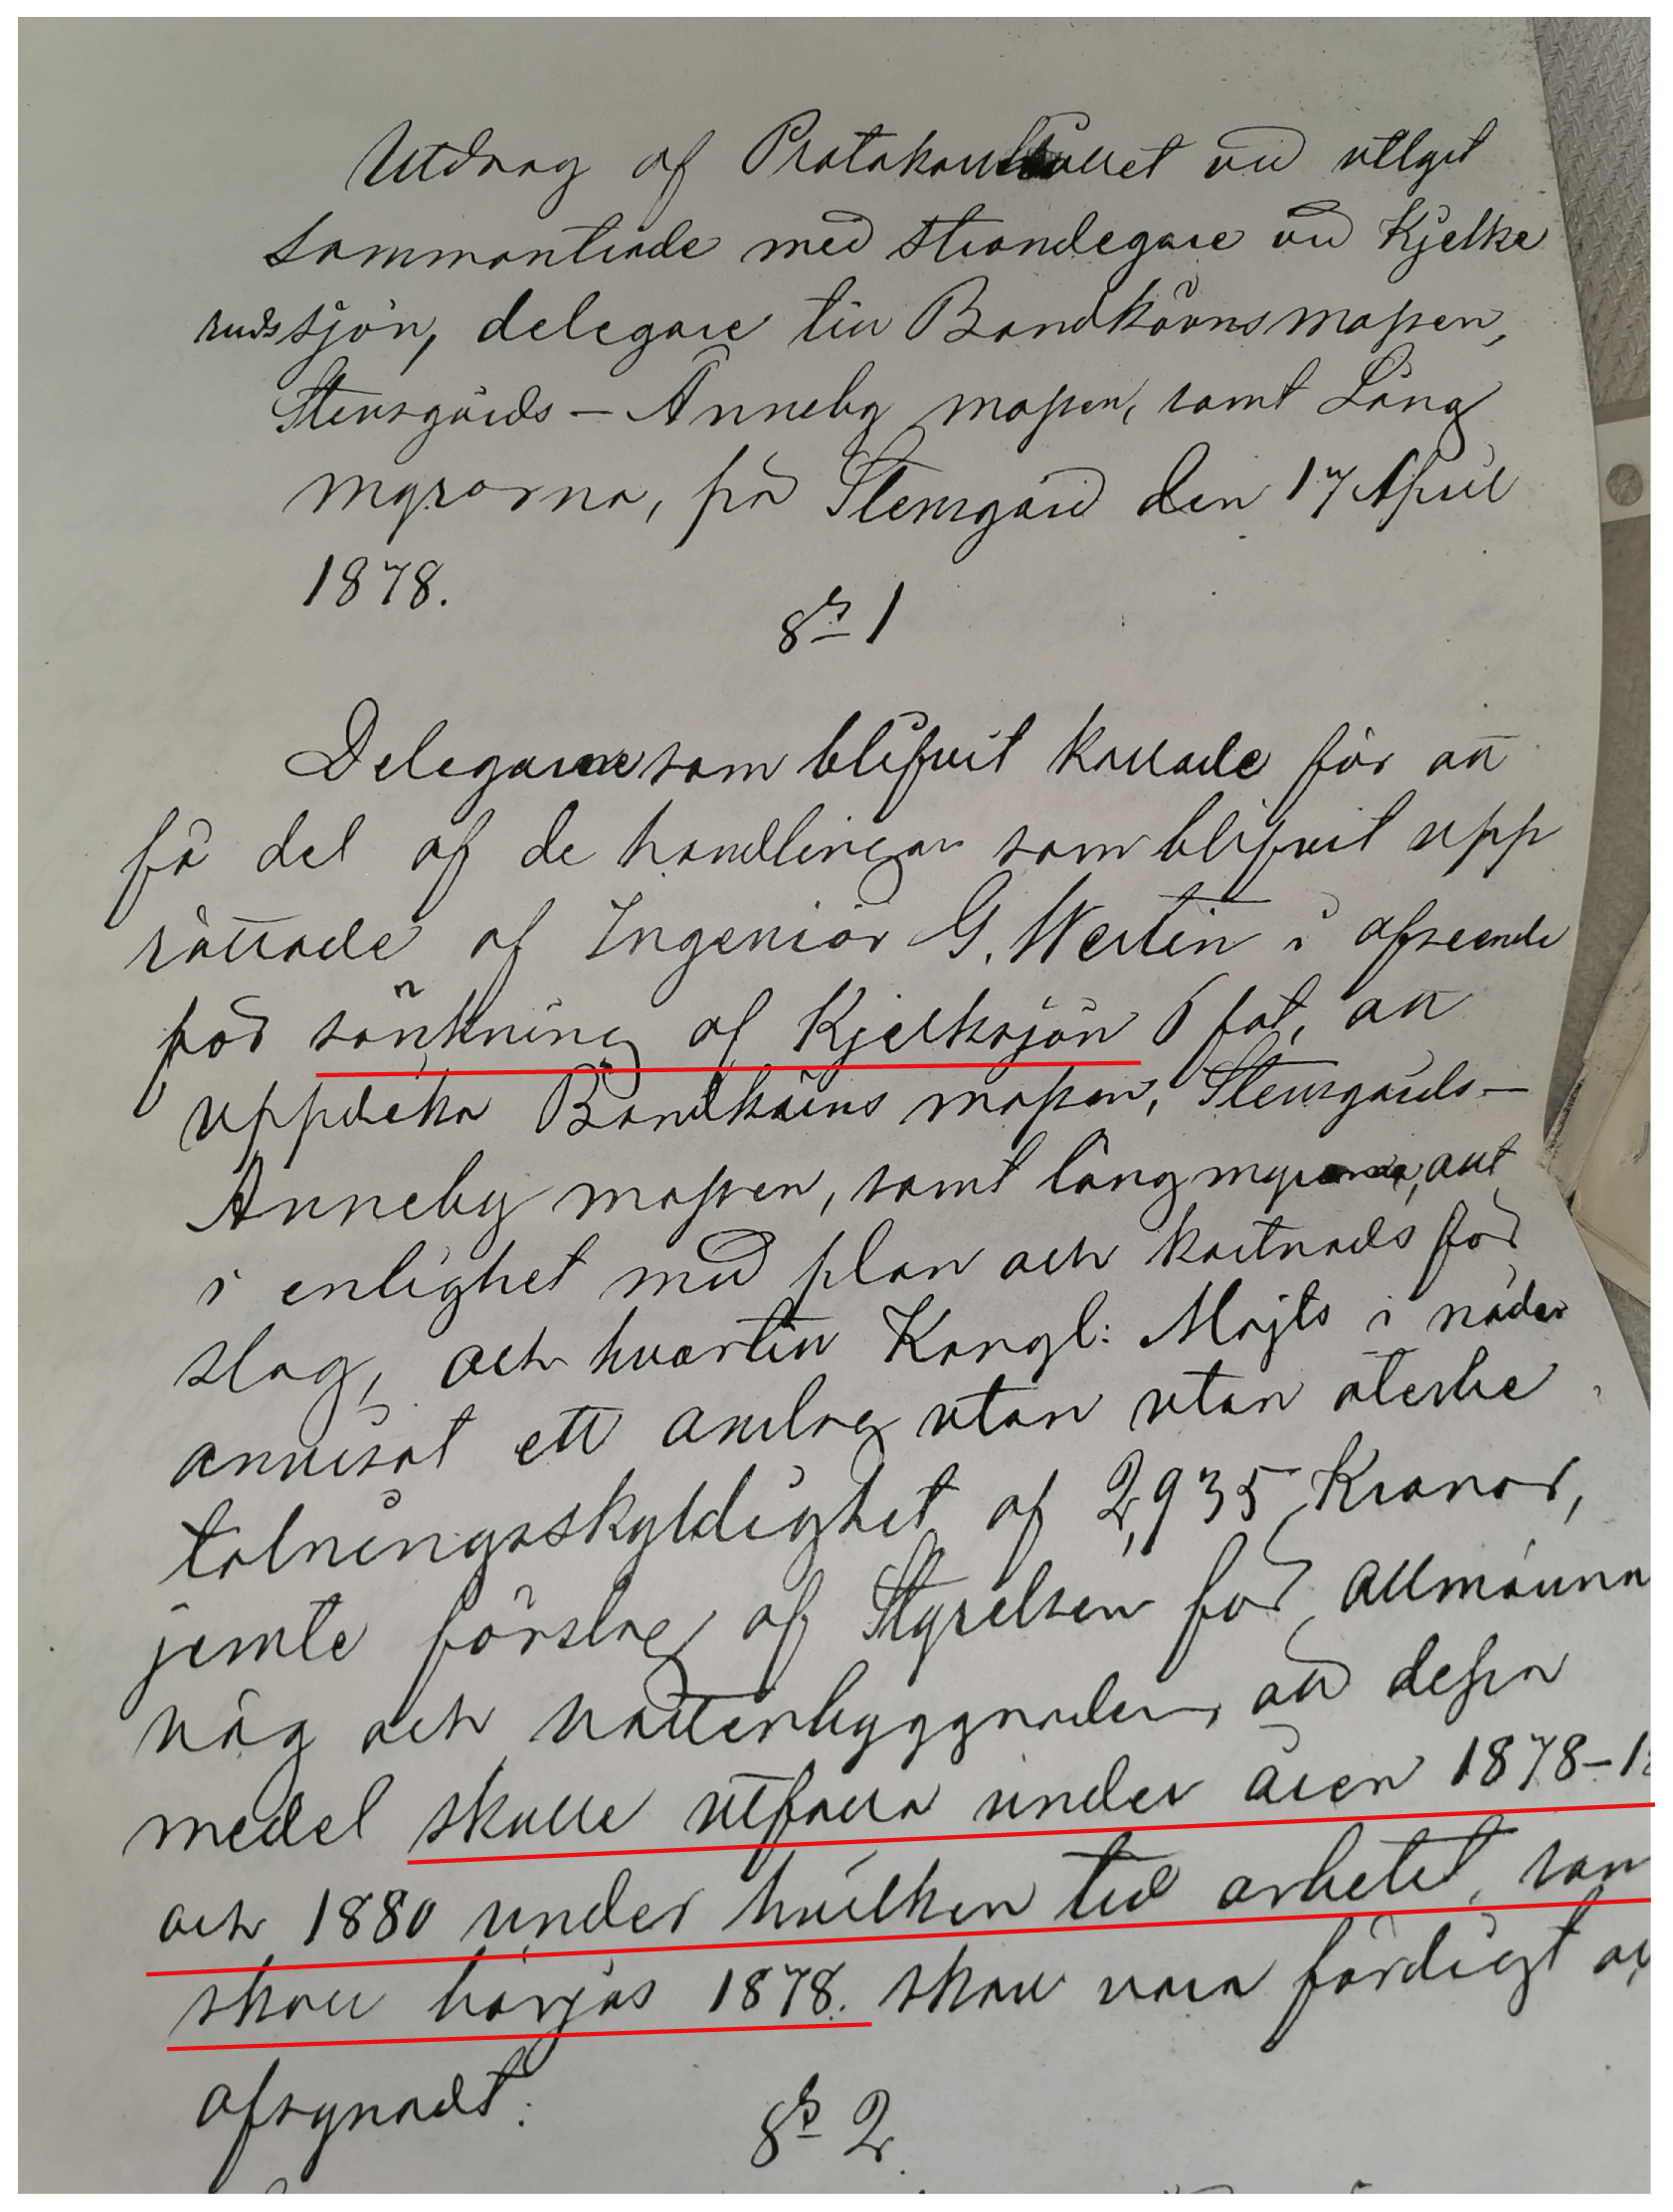 Utdrag af Protokollet vid utlyst
sammanträde med strandegare vid Kjelke
rudssjön, delegare till Bandkärnsmossen,
Stensgårds – Anneby mossen, samt Lång
myrarna, på Stensgård den 17 April
1878.
§ 1
Delegarne som blifvit kallade för att
få del af de handlingar som blifvit upp
rättade af Ingeniör G. Wertin i afseende
för sänkning af Kjelksjön 6 fot, att
uppdika Bandkärns mossen, Stensgårds –
Anneby mossen, samt långmyrarna, allt
i enlighet med plan och kostnads för
slag, och hvartill Kongl: Majts i nåder
anvisat ett anslag utan utan återbe
talningsskyldighet af 2,935 Kronor,
jemte förslag af Styrelsen för allmänna
väg och vattenbyggnader, att dessa
medel skulle utfalla under åren 1878–18
och 1880 under hvilken tid arbetet, som
skall börjas 1878. skall vara färdigt
afsynadt.
§ 2